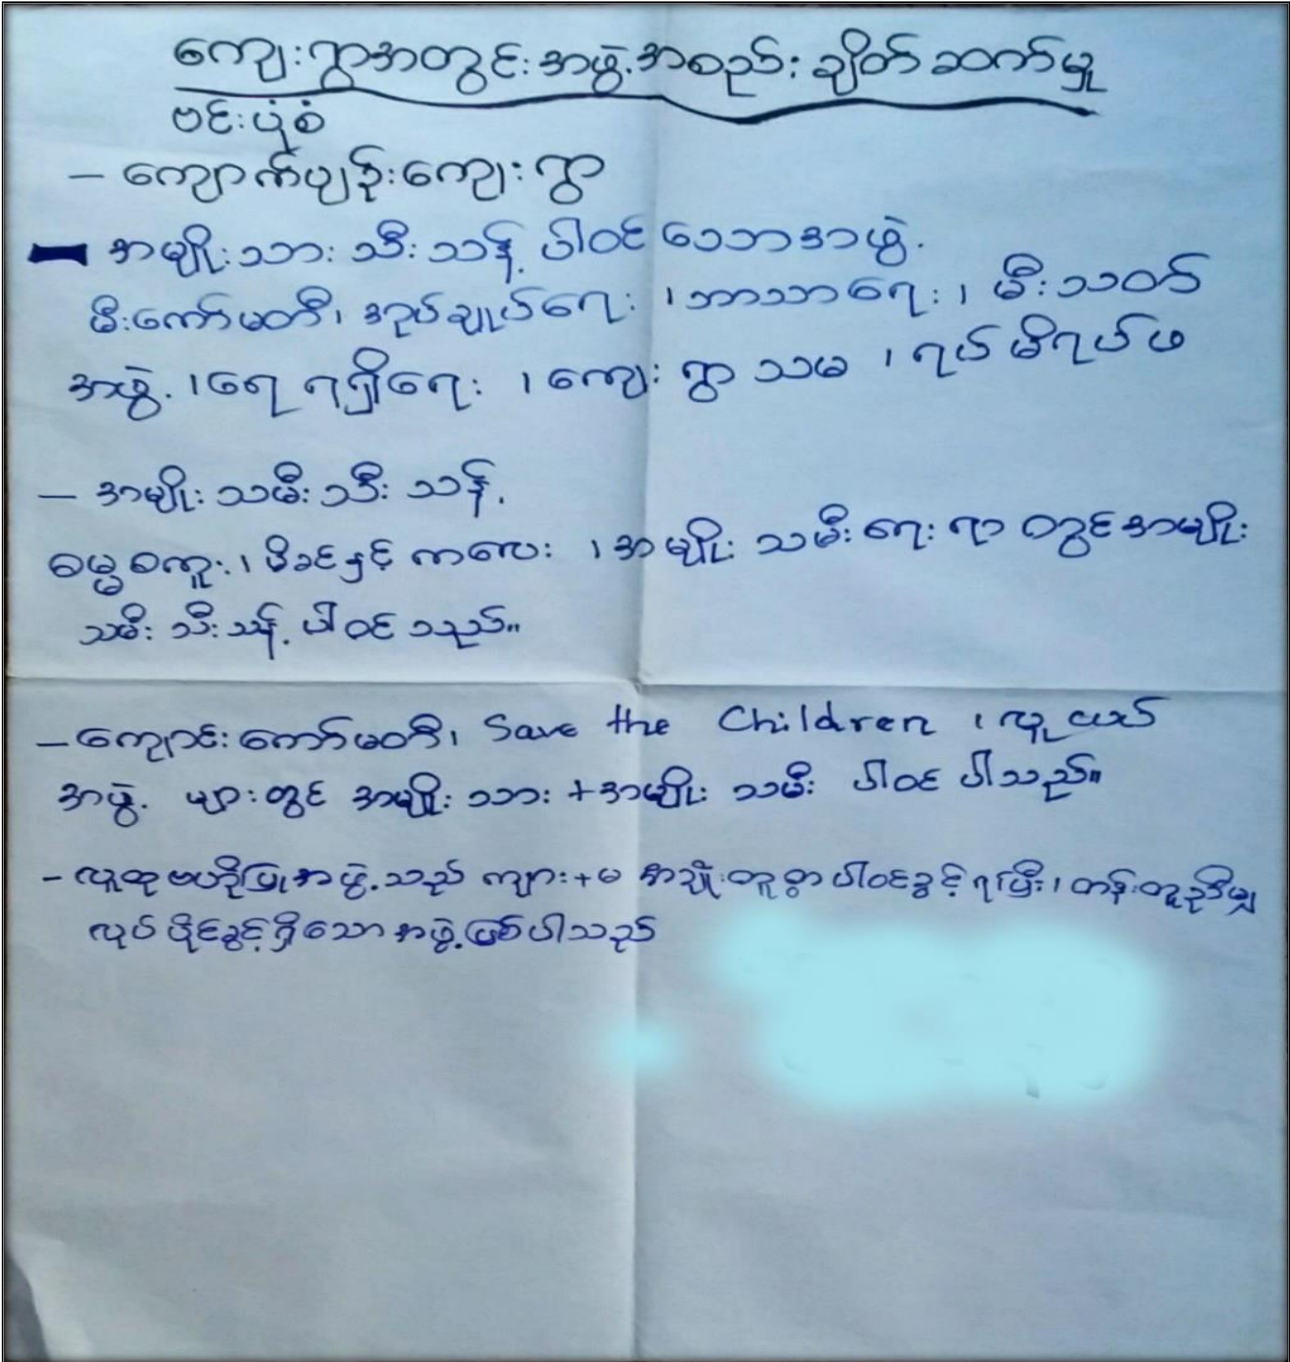 ကျေးရွာအတွင်းအဖွဲ့အစည်းချိတ်ဆက်မှု
ဗင်းပုံစံ
– ကျောက်ပျဉ်းကျေးရွာ
– အမျိုးသားသီးသန့်ပါဝင်သောအဖွဲ့
မီးကော်မတီ၊ အုပ်ချုပ်ရေး၊ ဘာသာရေး၊ မီးသတ်
အဖွဲ့၊ ရေရရှိရေး၊ ကျေးရွာသမ၊ ရပ်မိရပ်ဖ
– အမျိုးသမီးသီးသန့်
ဓမ္မစကူး၊ မိခင်နှင့်ကလေး၊ အမျိုးသမီးရေးရာတွင်အမျိုး
သမီးသီးသန့်ပါဝင်သည်။
– ကျောင်းကော်မတီ၊ Save the Children ၊ လူငယ်
အဖွဲ့များတွင် အမျိုးသား + အမျိုးသမီး ပါဝင်ပါသည်။
– လူထုဗဟိုပြုအဖွဲ့သည် ကျား + မ အချိုးတူစွာပါဝင်ခွင့်ရပြီး၊ တန်းတူညီမျှ
လုပ်ပိုင်ခွင့်ရှိသောအဖွဲ့ဖြစ်ပါသည်